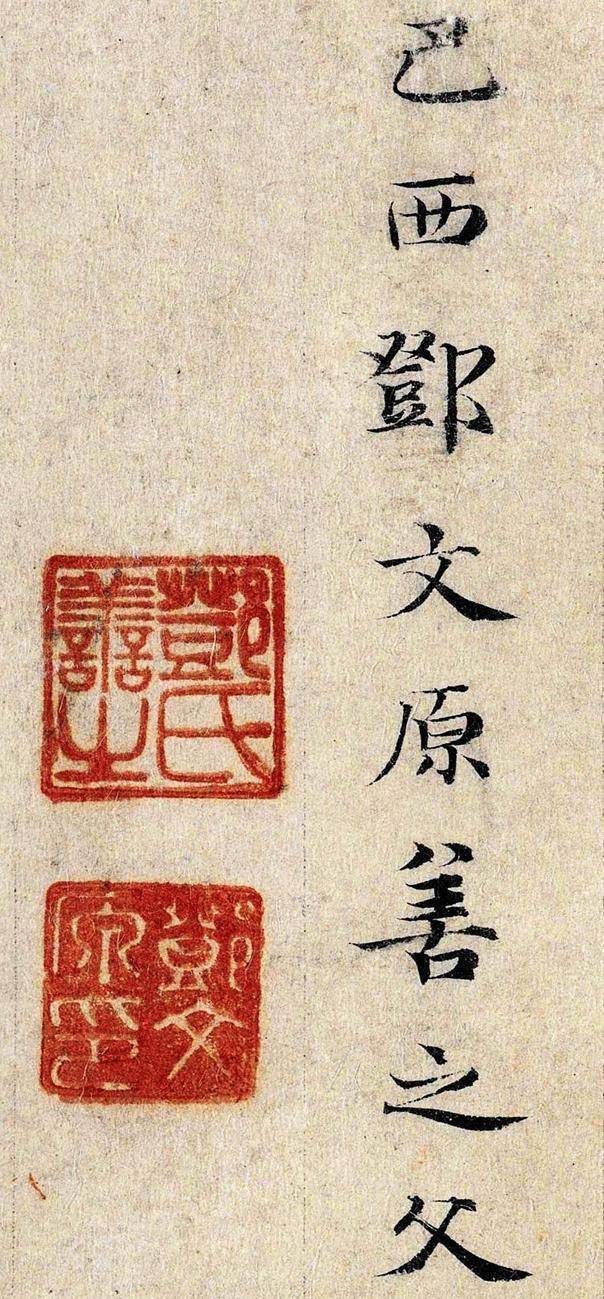 巴西鄧文原善之父
鄧氏
善之
鄧文
原印